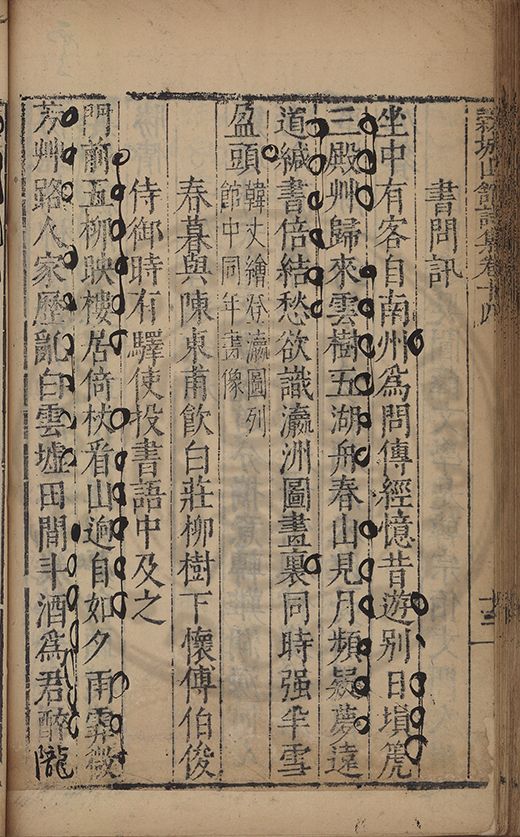 穀城山館詩集卷十四
十三
書問訊
坐中有客自南州爲問傳經憶昔遊別日塤篪
三殿艸歸來雲樹五湖舟春山見月頻疑夢遠
道緘書倍結愁欲識瀛洲圖畫裏同時强半雪
盈頭
韓丈繪登瀛圖列
館中同年壽像
春暮與陳東甫飲白莊柳樹下懷傅伯俊
侍御時有驛使投書語中及之
門前五柳映樓居倚杖看山逈自如夕雨霏微
芳艸路人家歷亂白雲墟田間斗酒爲君醉隴